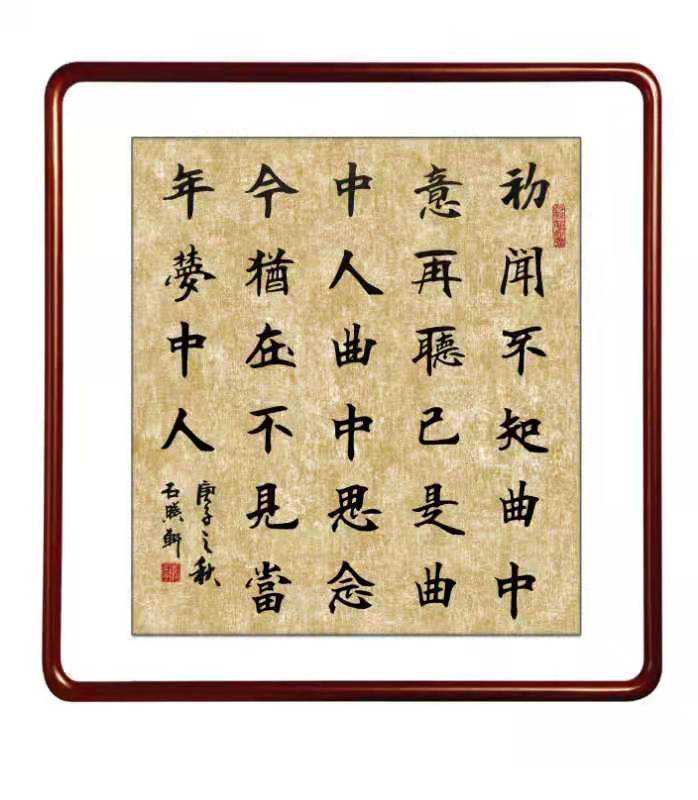 初聞不知曲中
意再聽已是曲
中人曲中思念
今猶在不見當
年夢中人
庚子之秋